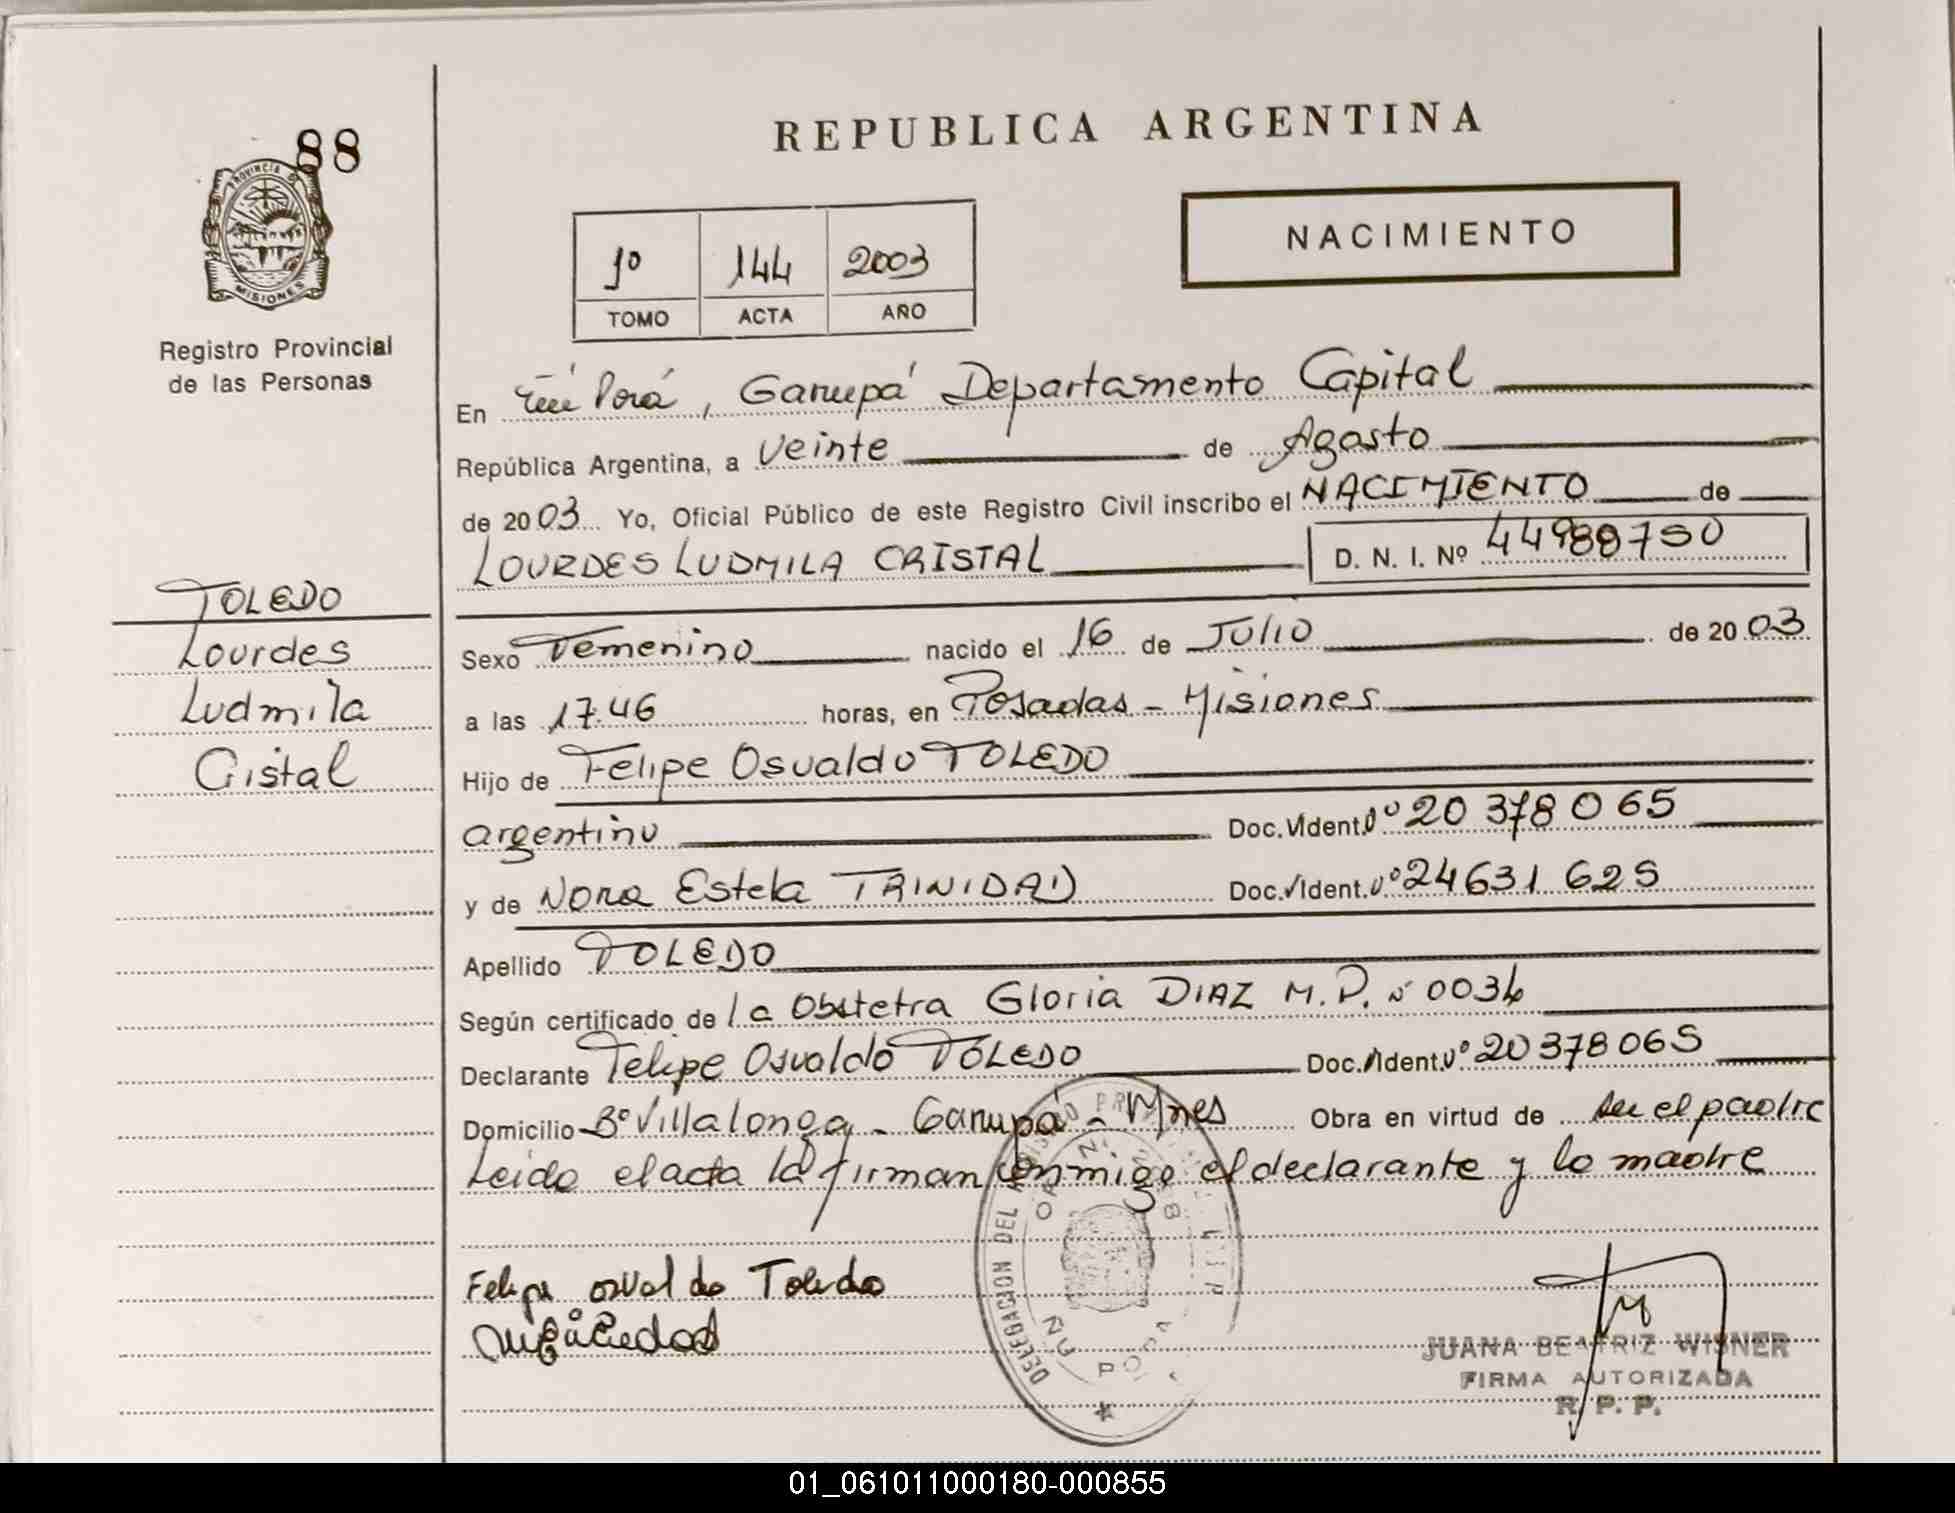 88
REPUBLICA ARGENTINA
PROVINCIA DE MISIONES
Registro Provincial
de las Personas
1º 144 2003
TOMO ACTA AÑO
NACIMIENTO
En Porá, Garupá Departamento Capital
República Argentina, a Veinte de Agosto
de 2003 Yo, Oficial Público de este Registro Civil inscribo el NACIMIENTO de
LOURDES LUDMILA CRISTAL D. N. I. Nº 44988750
TOLEDO
Lourdes
Ludmila
Cristal
Sexo Femenino nacido el 16 de Julio de 2003
a las 17.46 horas, en Posadas - Misiones
Hijo de Felipe Osvaldo TOLEDO
argentino Doc. Ident. Nº 20 378 065
y de Nora Estela TRINIDAD Doc. Ident. Nº 24631 625
Apellido TOLEDO
Según certificado de la Obstetra Gloria DIAZ M.P. Nº 0034
Declarante Felipe Osvaldo TOLEDO Doc. Ident. Nº 20 378 065
Domicilio Bº Villalonga - Garupá - Mnes Obra en virtud de ser el padre
Leida el acta la firman conmigo el declarante y la madre
Felipe osvaldo Toledo
DELEGACION DEL
JUANA BEATRIZ WISNER
FIRMA AUTORIZADA
R. P. P.
01_061011000180-000855